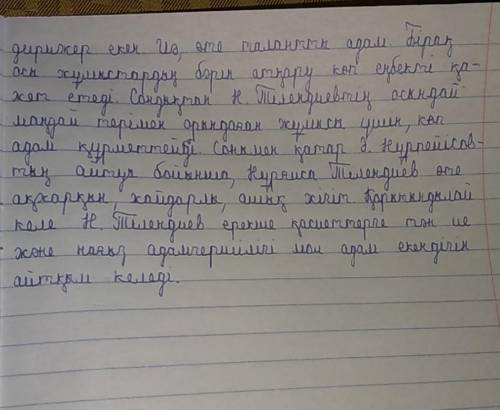 дирижер екен. Иә, өте талантты адам. Бірақ
осы жұмыстардың бәрін атқару көп еңбекті қа-
жет етеді. Сондықтан Н. Тілендиевтің осындай
маңдай терімен орындаған жұмысы үшін, көп
адам құрметтейді. Сонымен қатар Ә. Нұрпейісов-
тың айтуы бойынша, Нұрғиса Тілендиев өте
ақжарқын, жайдарлы, ашық жігіт. Қорытындылай
келе Н. Тілендиев ерекше қасиеттерге тән ие
және нағыз адамгершілігі мол адам екендігін
айтқым келеді.